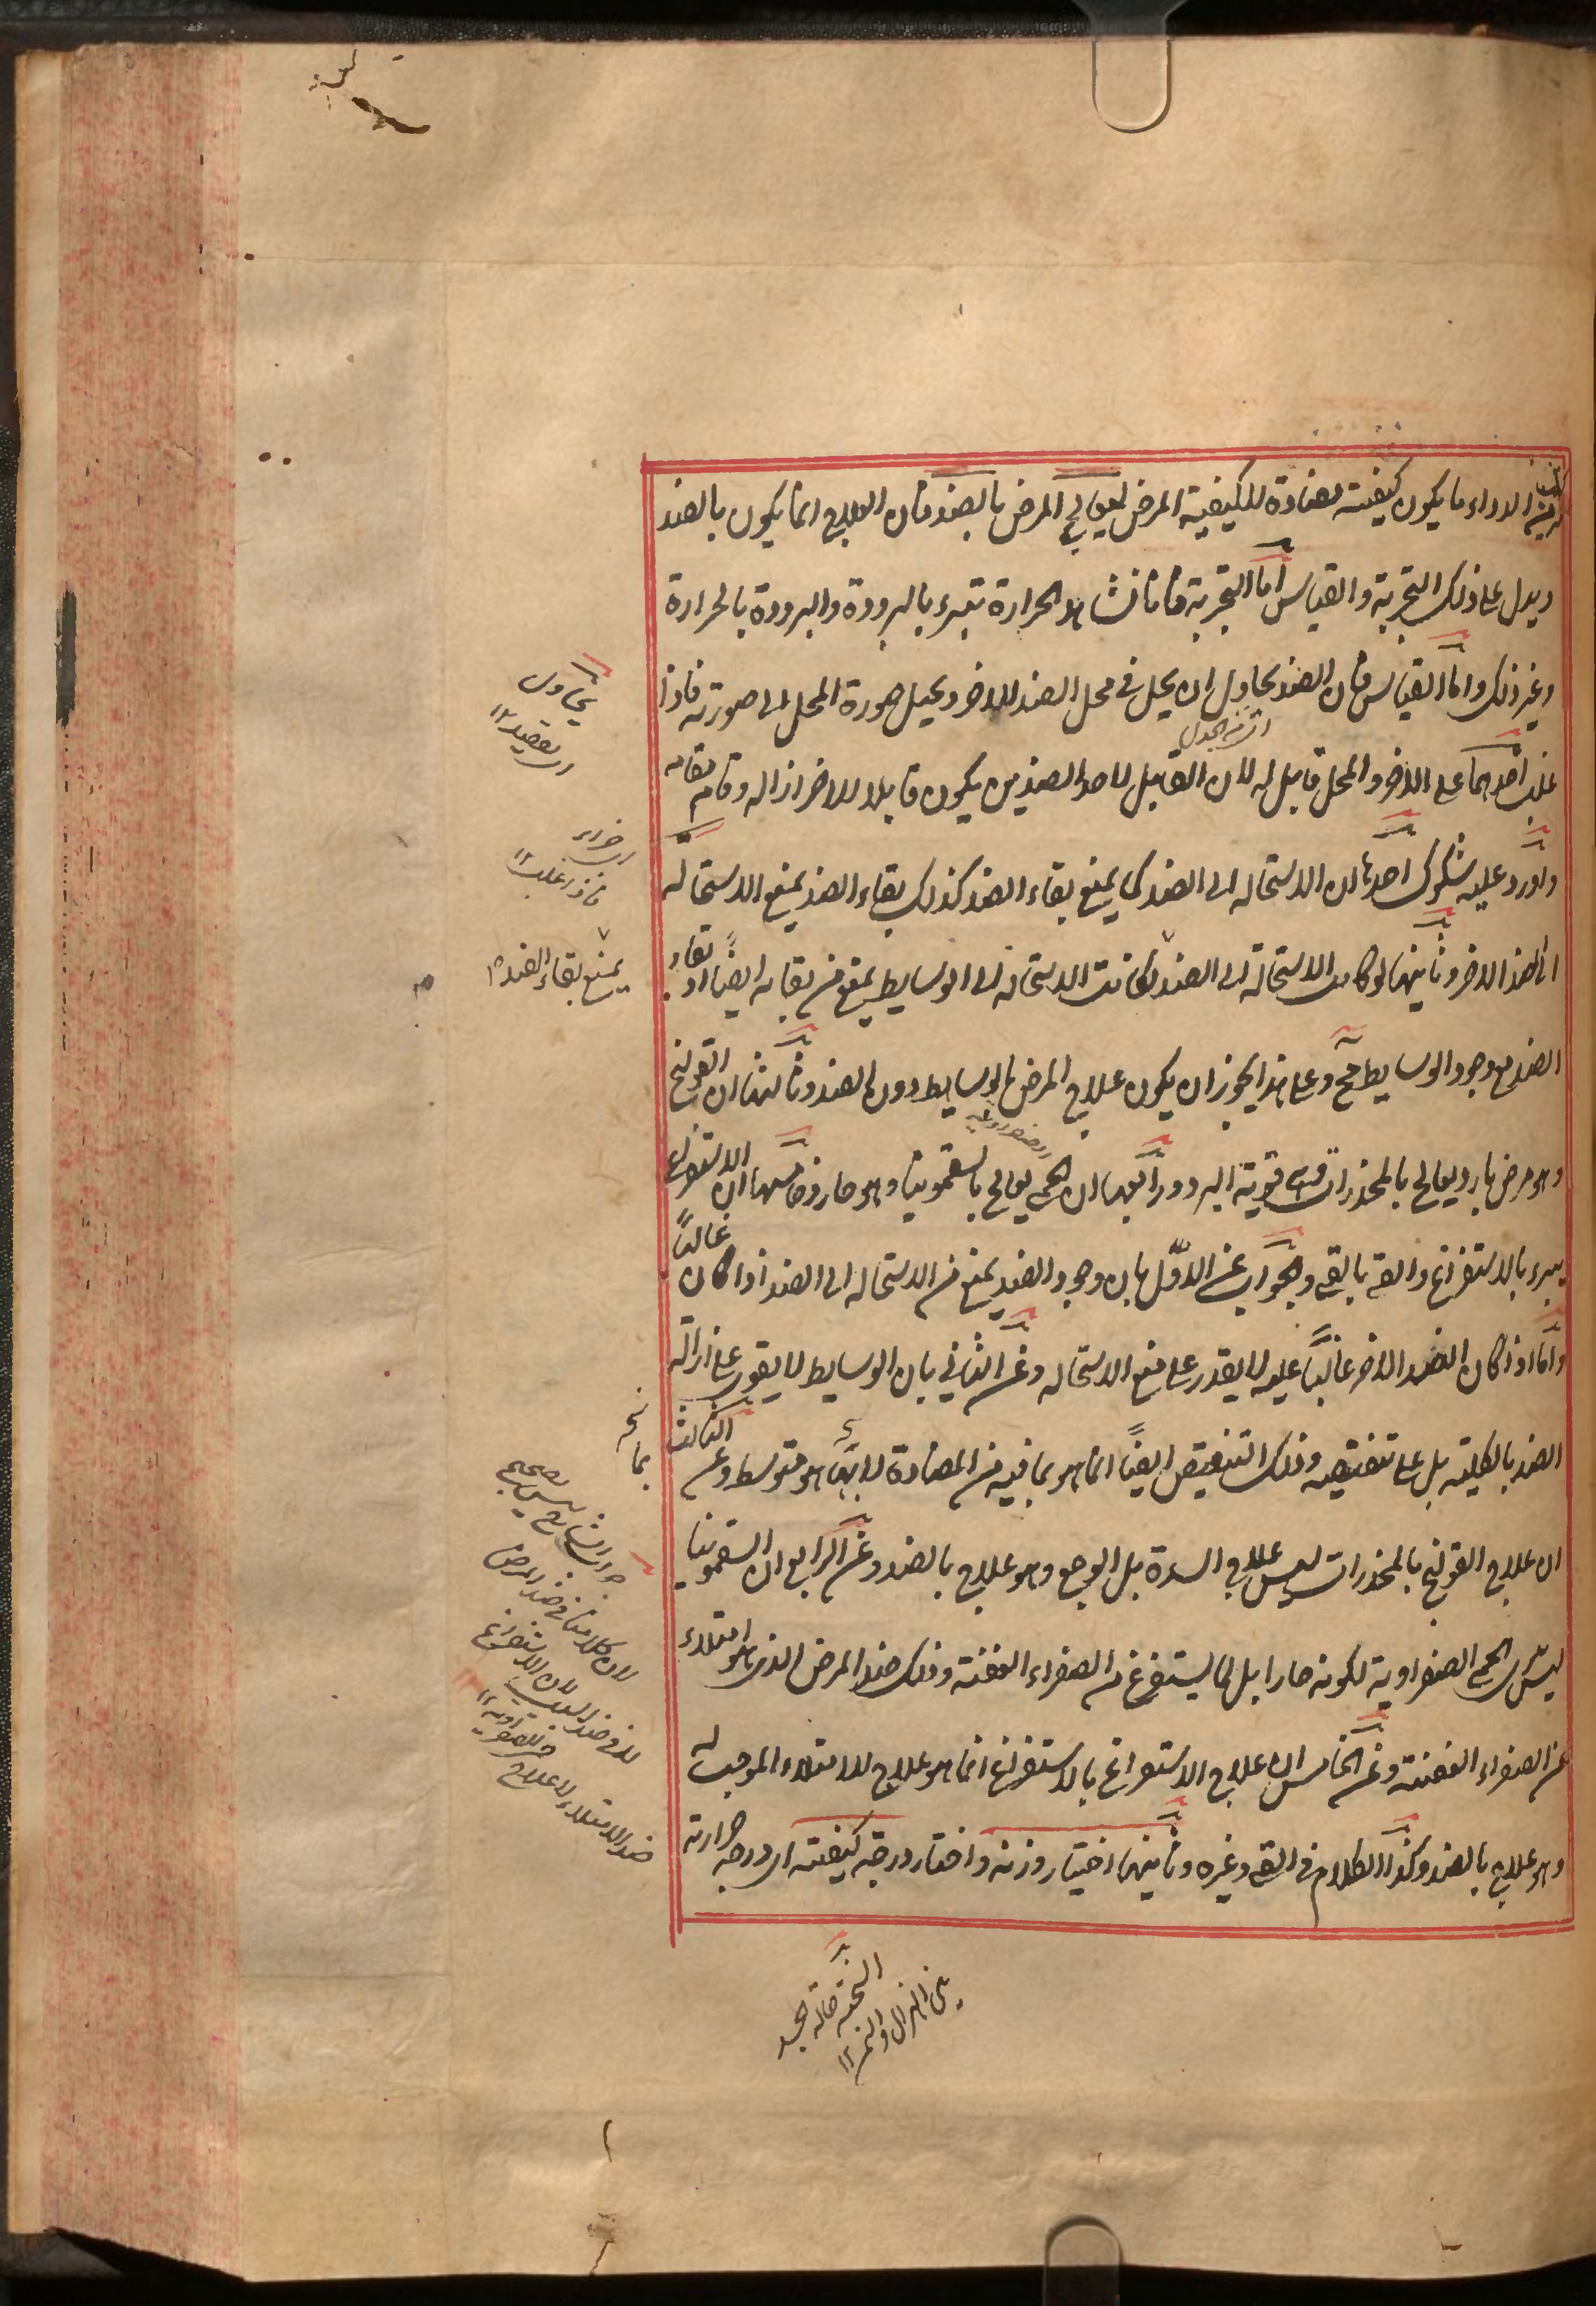 من الدواء ما يكون كيفيته مضادة للكيفية المرض ليعالج المرض بالضد فان العلاج انما يكون بالضد
ويدل على ذلك التجربة والقياس اما التجربة فانا نشاهد الحرارة تبرء بالبرودة والبرودة بالحرارة
وغير ذلك واما القياس فان الضد يحاول ان يحل في محل الضد الاخر ويحيل صورة المحل الى صورته فاذا
غلب احدهما على الاخر والمحل قابل له لان القابل لاحد الضدين يكون قابلا للاخر ازاله وقام مقامه
واورد عليه شكوك احدها ان الاستحالة الى الضد كما يمنع بقاء الضد كذلك بقاء الضد يمنع الاستحالة
الى الضد الاخر وثانيها لو كانت الاستحالة الى الضد لكانت الاستحالة الى الوسايط يمنع من بقائه ايضا اذ بقاء
الضد مع وجود الوسايط مح وعلى هذا يجوز ان يكون علاج المرض بالوسايط دون الضد وثالثها ان القولنج
وهو مرض بارد يعالج بالمخدرات قوية البرد ورابعها ان الحمى يعالج بالسقمونيا وهو حار وخامسها ان الاستفراغ
يبرء بالاستفراغ والقئ بالقئ والجواب عن الاول بان وجود الضد يمنع من الاستحالة الى الضد اذا كان غالبًا
واما اذا كان الضد الاخر غالبًا عليه لا يقدر على منع الاستحالة وعن الثاني بان الوسايط لا يقوى على ازالة
الضد بالكلية بل على تنقيصه وذلك التنقيص ايضًا انما هو بما فيه من المضادة لا بما هو متوسط وعن الثالث
ان علاج القولنج بالمخدرات ليس علاج السدة بل الوجع وهو علاج بالضد وعن الرابع ان السقمونيا
ليس الحمى الصفراوية لكونه حارا بل لما يستفرغ من الصفراء العفنة وذلك ضد المرض الذي هو امتلاء
من الصفراء العفنة وعن الخامس ان علاج الاستفراغ بالاستفراغ انما هو علاج للامتلاء الموجب له
وهو علاج بالضد وكذا الكلام في القئ وغيره وثانيها اختيار وزنه واختيار درجة كيفيته اى درجة حرارته
يحاول
اى يقصد ١٢
فاذا غلب ١٢
يمنع بقاء الضد ١٢
لان كلامنا في ضد المرض
لا في ضد السبب لان الاستفراغ
ضد الامتلاء لا علاج
السحنة حالة الجسد
من الهزال والسمن ١٢